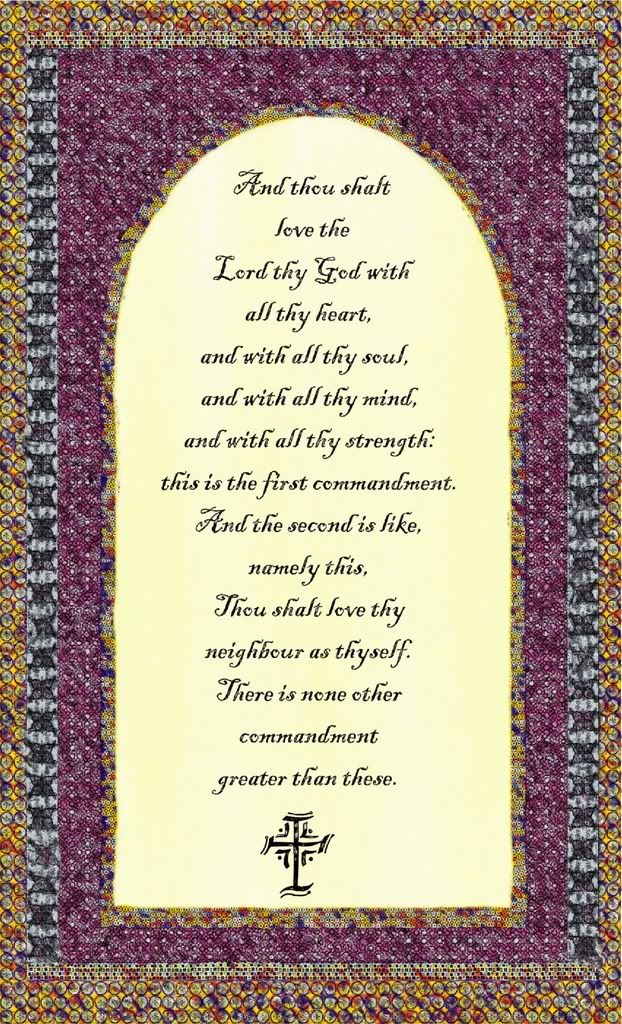 And thou shalt
love the
Lord thy God with
all thy heart,
and with all thy soul,
and with all thy mind,
and with all thy strength:
this is the first commandment.
And the second is like,
namely this,
Thou shalt love thy
neighbour as thyself.
There is none other
commandment
greater than these.